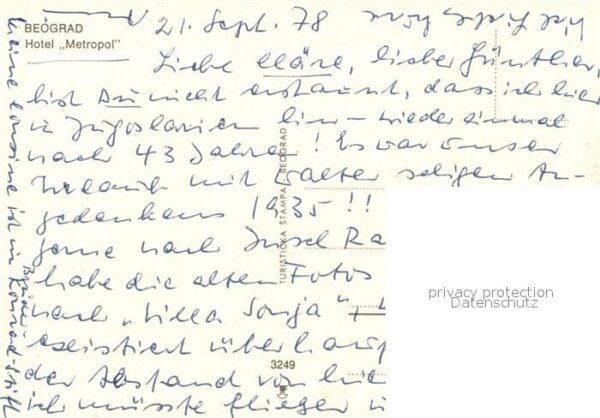 BEOGRAD
Hotel „Metropol"
21. Sept. 78
Liebe Kläre, lieber Günther,
bist Du nicht erstaunt, dass ich hier
in Jugoslavien bin – wieder einmal
nach 43 Jahren! Es war unser
Urlaub mit Walter seligen An-
gedenkens 1935!!
gerne nach Insel Ra
habe die alten Fotos
nach „Villa Sonja",
existiert überhaup
der Abstand von hie
ich müsste fliegen
meine Cousine ist im
Konrad-Stift
TURISTICKA STAMPA BEOGRAD
3249
privacy protection
Datenschutz